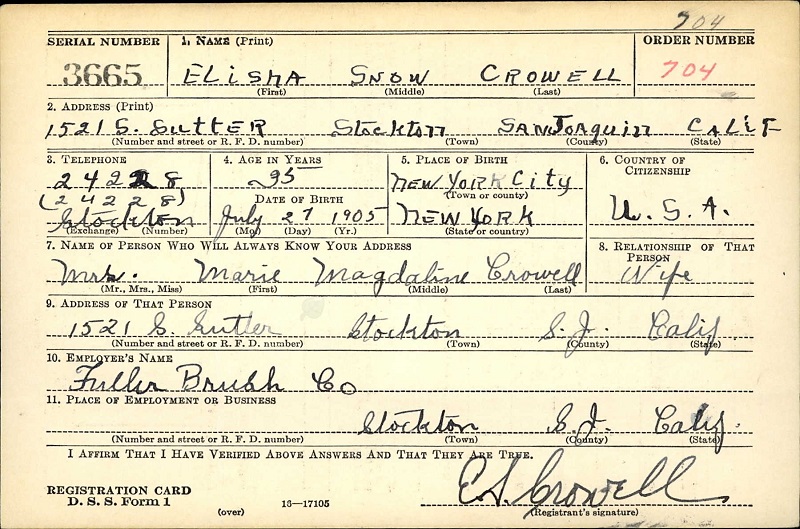 704
SERIAL NUMBER 1. NAME (Print) ORDER NUMBER
3665 ELISHA SNOW CROWELL 704
(First) (Middle) (Last)
2. ADDRESS (Print)
1521 S. SUTTER Stockton SAN JOAQUIN CALIF
(Number and street or R. F. D. number) (Town) (County) (State)
3. TELEPHONE 4. AGE IN YEARS 5. PLACE OF BIRTH 6. COUNTRY OF CITIZENSHIP
24228 35 NEW YORK City
(24228) DATE OF BIRTH (Town or county)
Stockton July 27 1905 NEW YORK U.S.A.
(Exchange) (Number) (Mo.) (Day) (Yr.) (State or country)
7. NAME OF PERSON WHO WILL ALWAYS KNOW YOUR ADDRESS 8. RELATIONSHIP OF THAT PERSON
Mrs. Marie Magdaline Crowell Wife
(Mr., Mrs., Miss) (First) (Middle) (Last)
9. ADDRESS OF THAT PERSON
1521 S. Sutter Stockton S.J. Calif
(Number and street or R. F. D. number) (Town) (County) (State)
10. EMPLOYER'S NAME
Fuller Brush Co
11. PLACE OF EMPLOYMENT OR BUSINESS
Stockton S.J. Calif
(Number and street or R. F. D. number) (Town) (County) (State)
I AFFIRM THAT I HAVE VERIFIED ABOVE ANSWERS AND THAT THEY ARE TRUE.
REGISTRATION CARD E S Crowell
D. S. S. Form 1 (over) 16—17105 (Registrant's signature)